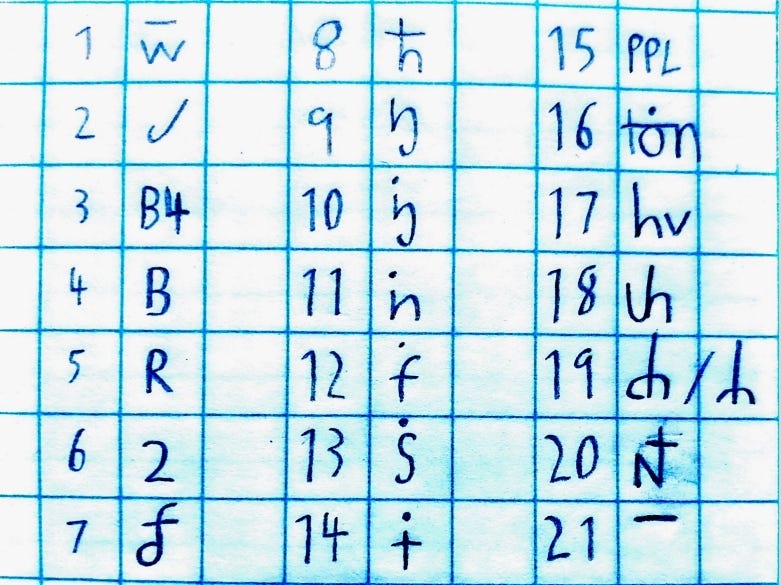 1 w̅ 8 ħ 15 PPL
2 ✓ 9 ŋ 16 ṫȯn
3 B4 10 ŋ̇ 17 hv
4 B 11 ṅ 18
5 R 12 ḟ 19 /
6 2 13 Ṡ 20
7 14 ṫ 21 –